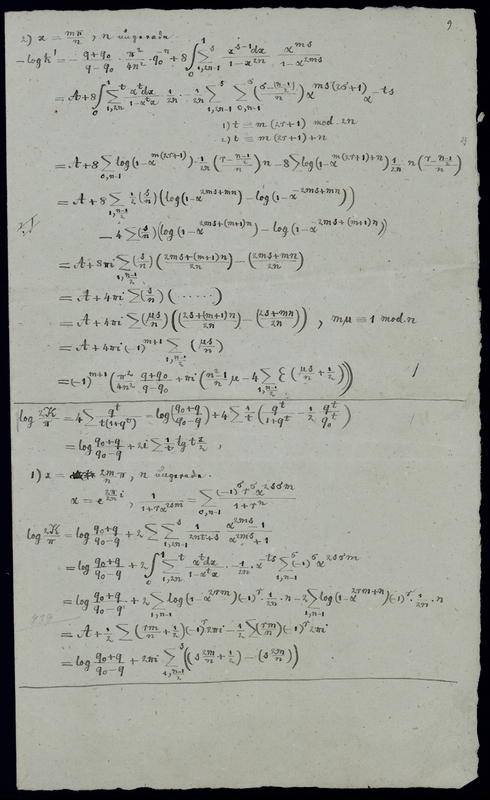 9
2) x = mπ/n, n ungerade.
-log k' = (q+q₀)/(q-q₀) · π²/4n² · q₀⁻ⁿ + 8∫₀¹ Σ_{1,2n}^s x^{s-1}dx/(1-x^{2n}) α^{ms}/(1-α^{2ms})
= A + 8∫₀¹ Σ_{1,2n}^t α^t dx/(1-α^t x) · 1/2n · 1/2n Σ_{1,2n-1}^s Σ_{0,n-1}^σ ((σ-(n-1)/2)/n) α^{ms(2σ+1)} α^{-ts}
1) t ≡ m(2r+1) mod. 2n
2) t ≡ m(2r+1)+n
= A + 8 Σ_{0,n-1} log(1-α^{m(2r+1)}) · 1/2n ((r-(n-1)/2)/n) n - 8 Σ log(1-α^{m(2r+1)+n}) 1/2n · n ((r-(n-1)/2)/n)
= A + 8 Σ_{1,(n-1)/2} 1/2 (s/n) (log(1-α^{2ms+mn}) - log(1-α^{-2ms+mn}))
- 4 Σ (s/n) (log(1-α^{2ms+(m+1)n}) - log(1-α^{-2ms+(m+1)n}))
= A + 8πi Σ_{1,(n-1)/2} (s/n) ((2ms+(m+1)n)/2n) - ((2ms+mn)/2n)
= A + 4πi Σ (s/n) (······)
= A + 4πi Σ (μs/n) (((2s+(m+1)n)/2n) - ((2s+mn)/2n)), mμ ≡ 1 mod. n
= A + 4πi (-1)^{m+1} Σ_{1,(n-1)/2} (μs/n)
= (-1)^{m+1} (π²/4n² (q₀+q)/(q-q₀) + πi ((n²-1)/n μ - 4 Σ_{1,(n-1)/2} E(μs/n + 1/2)))
log 2K/π = 4 Σ q^t/t(1+q^t) = log((q₀+q)/(q₀-q)) + 4 Σ 1/t (q^t/(1+q^t) - 1/2 q^t/q₀^t)
= log (q₀+q)/(q₀-q) + 2i Σ 1/t tg t x/2,
1) x = 2m/n π, n ungerade.
α = e^{2π/2n i}, 1/(1+rα^{2sm}) = Σ_{0,n-1} (-1)^σ r^σ α^{2sσm}/(1+rⁿ)
log 2K/π = log (q₀+q)/(q₀-q) + 2 Σ Σ_{1,2n-1}^s 1/(2nt+s) (α^{2ms}-1)/(α^{2ms}+1)
= log (q₀+q)/(q₀-q) + 2∫₀¹ Σ_{1,2n}^t α^t dx/(1-α^t x) · 1/2n · α^{-ts} Σ_{1,n-1}^σ (-1)^σ α^{2sσm}
= log (q₀+q)/(q₀-q) + 2 Σ_{1,n-1} log(1-α^{2rm}) (-1)^r · 1/2n · n - 2 Σ_{1,n-1} log(1-α^{2rm+n}) (-1)^r · 1/2n · n
= A + 1/2 Σ (rm/n + 1/2) (-1)^r 2πi - 1/2 Σ (rm/n) (-1)^r 2πi
= log (q₀+q)/(q₀-q) + 2πi Σ_{1,(n-1)/2}^s ((s 2m/n + 1/2) - (s 2m/n))